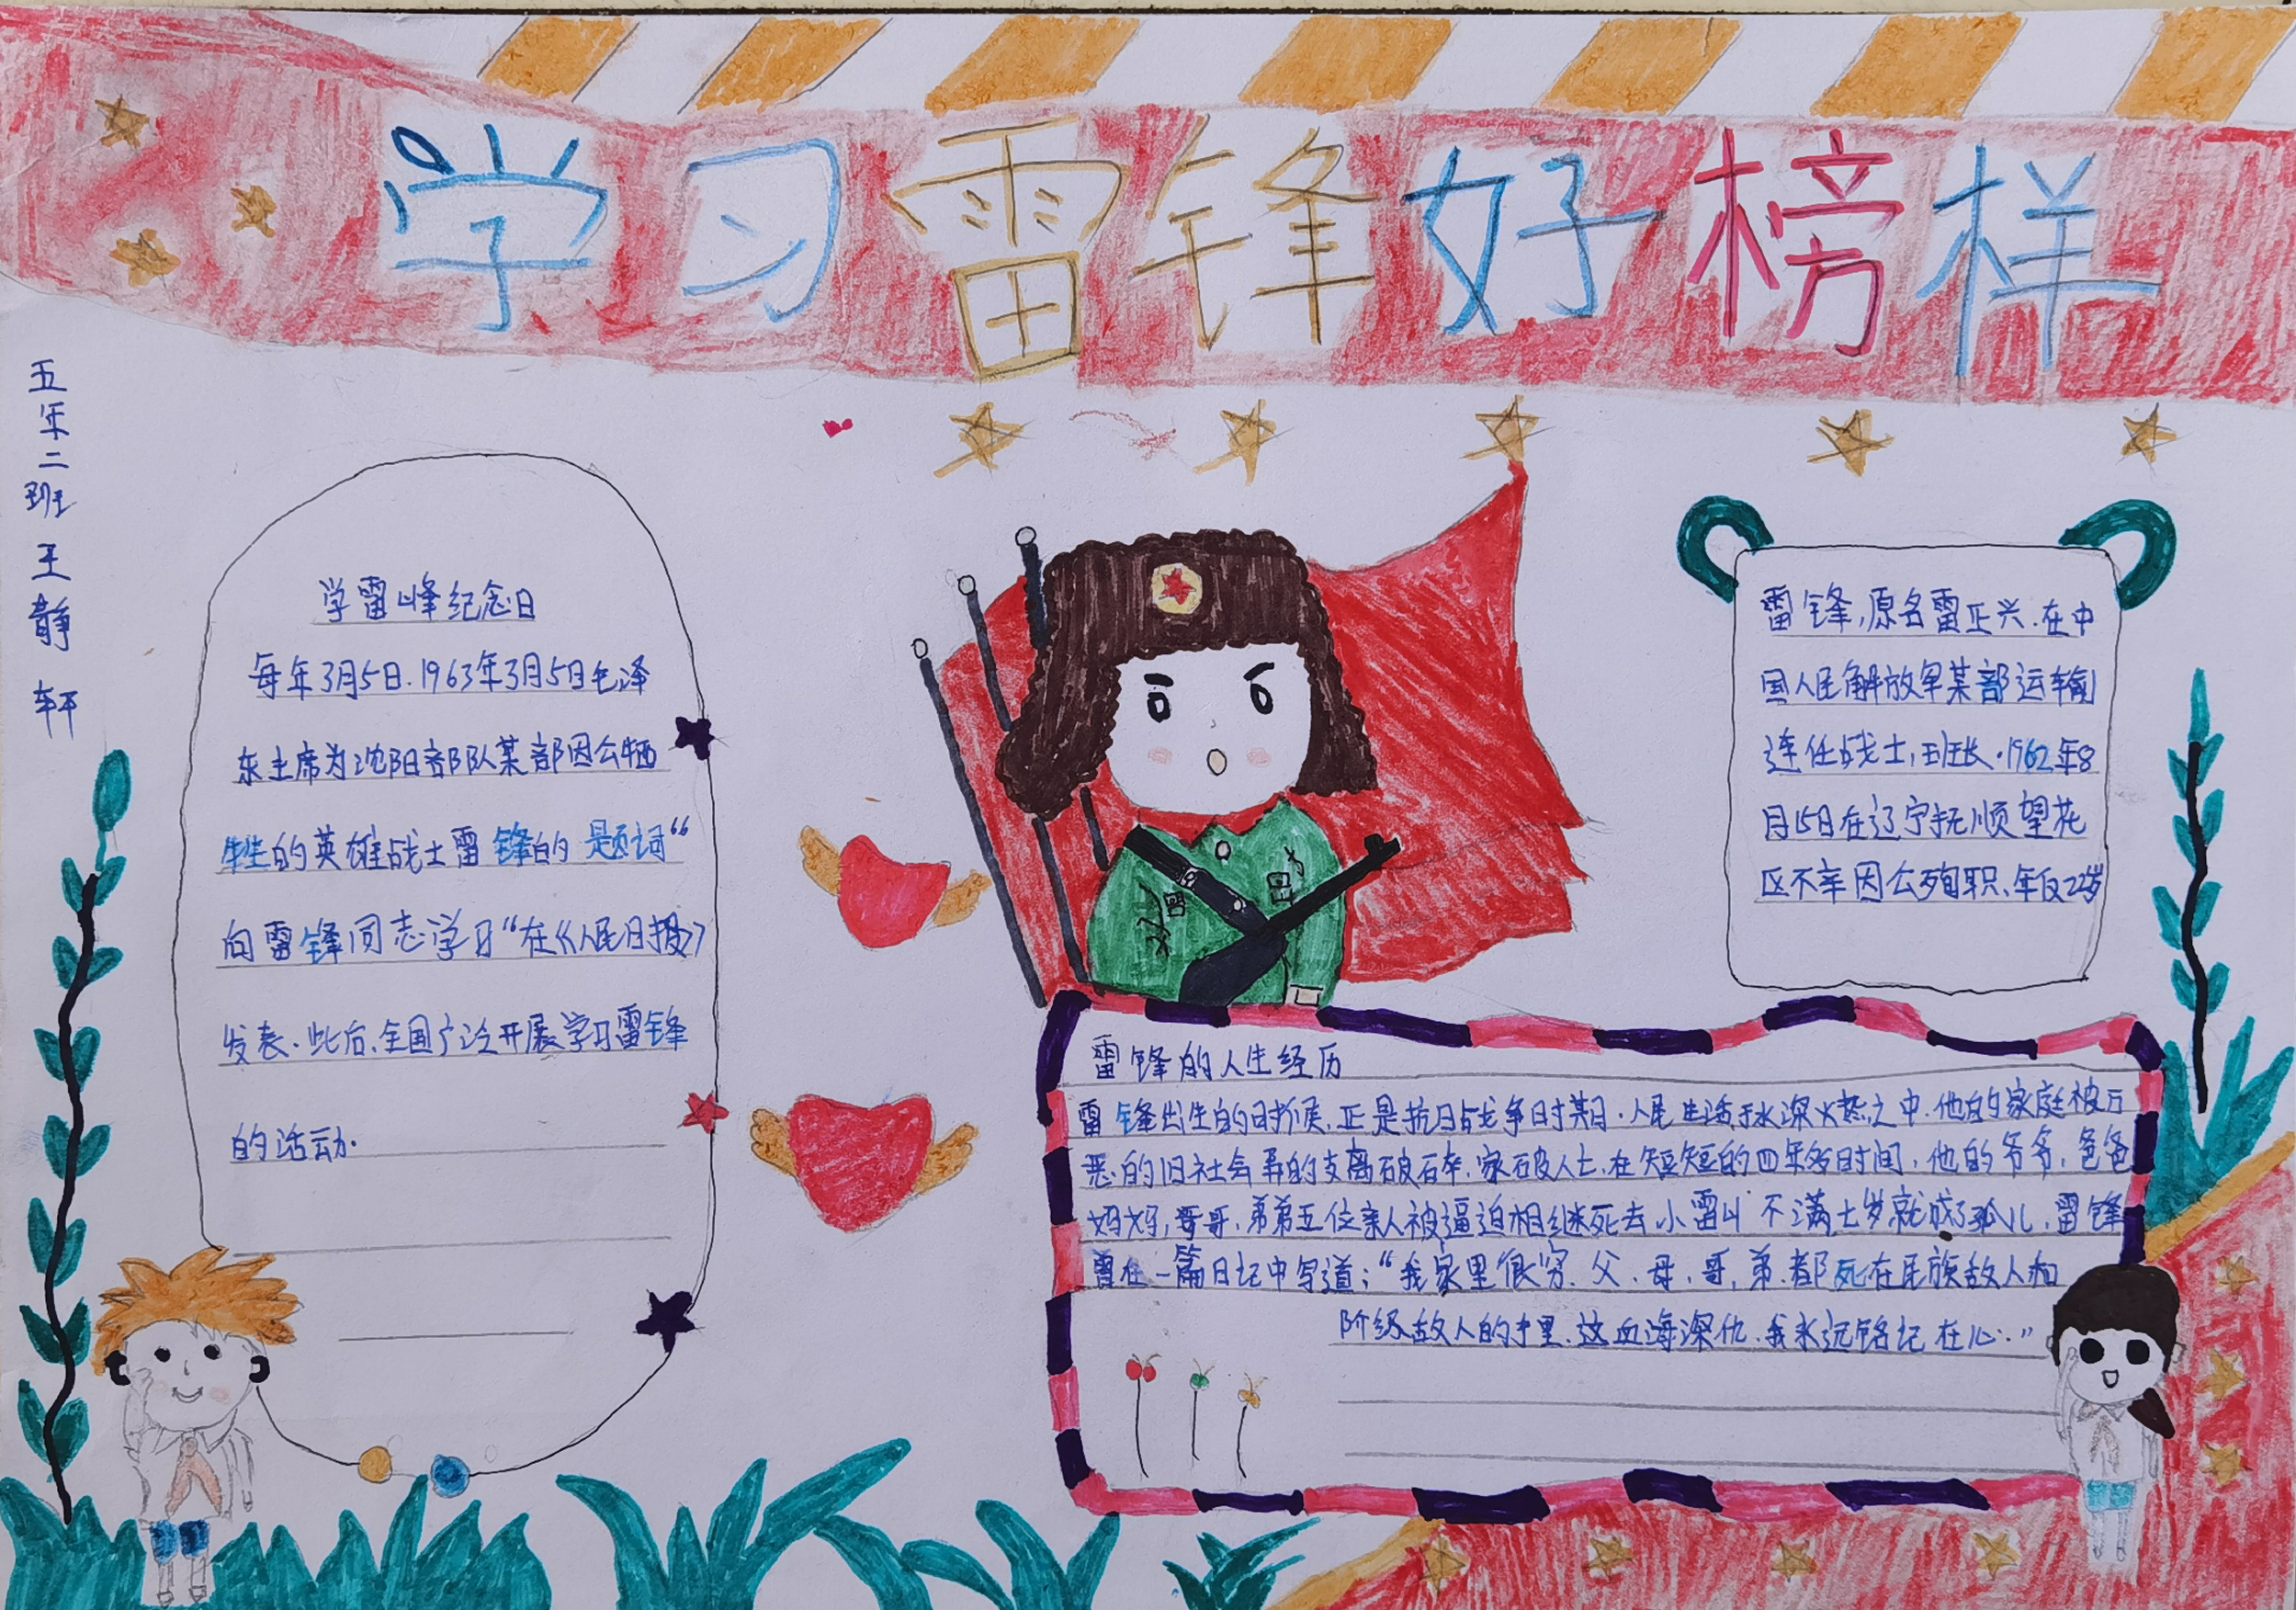 学习雷锋好榜样
五年二班 王静轩
学雷峰纪念日
每年3月5日.1963年3月5日毛泽
东主席为沈阳部队某部因公牺
牲的英雄战士雷锋的题词“
向雷锋同志学习“在《人民日报》
发表.此后.全国广泛开展学习雷锋
的活动.
雷锋,原名雷正兴.在中
国人民解放军某部运输
连任战士,班长.1962年8
月15日在辽宁抚顺望花
区不幸因公殉职.年仅22岁
雷锋的人生经历
雷锋出生的时候.正是抗日战争时期.人民生活于水深火热之中.他的家庭被万
恶的旧社会弄的支离破碎.家破人亡.在短短的四年多时间.他的爷爷,爸爸
妈妈,哥哥.弟弟五位亲人被逼迫相继死去.小雷 不满七岁就成了孤儿.雷锋
曾在一篇日记中写道:“我家里很穷.父.母.哥.弟.都死在民族敌人和
阶级敌人的手里.这血海深仇.我永远铭记在心.”